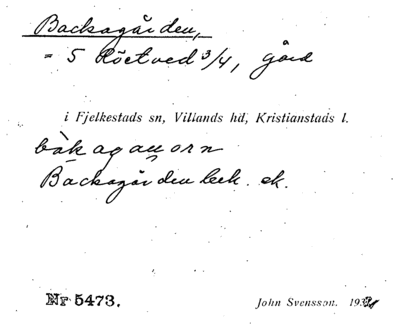 Backagården,
= 5 Röetved 3/4, gård
i Fjelkestads sn, Villands hd, Kristianstads l.
Backagården
Nr 5473.
John Svensson. 193